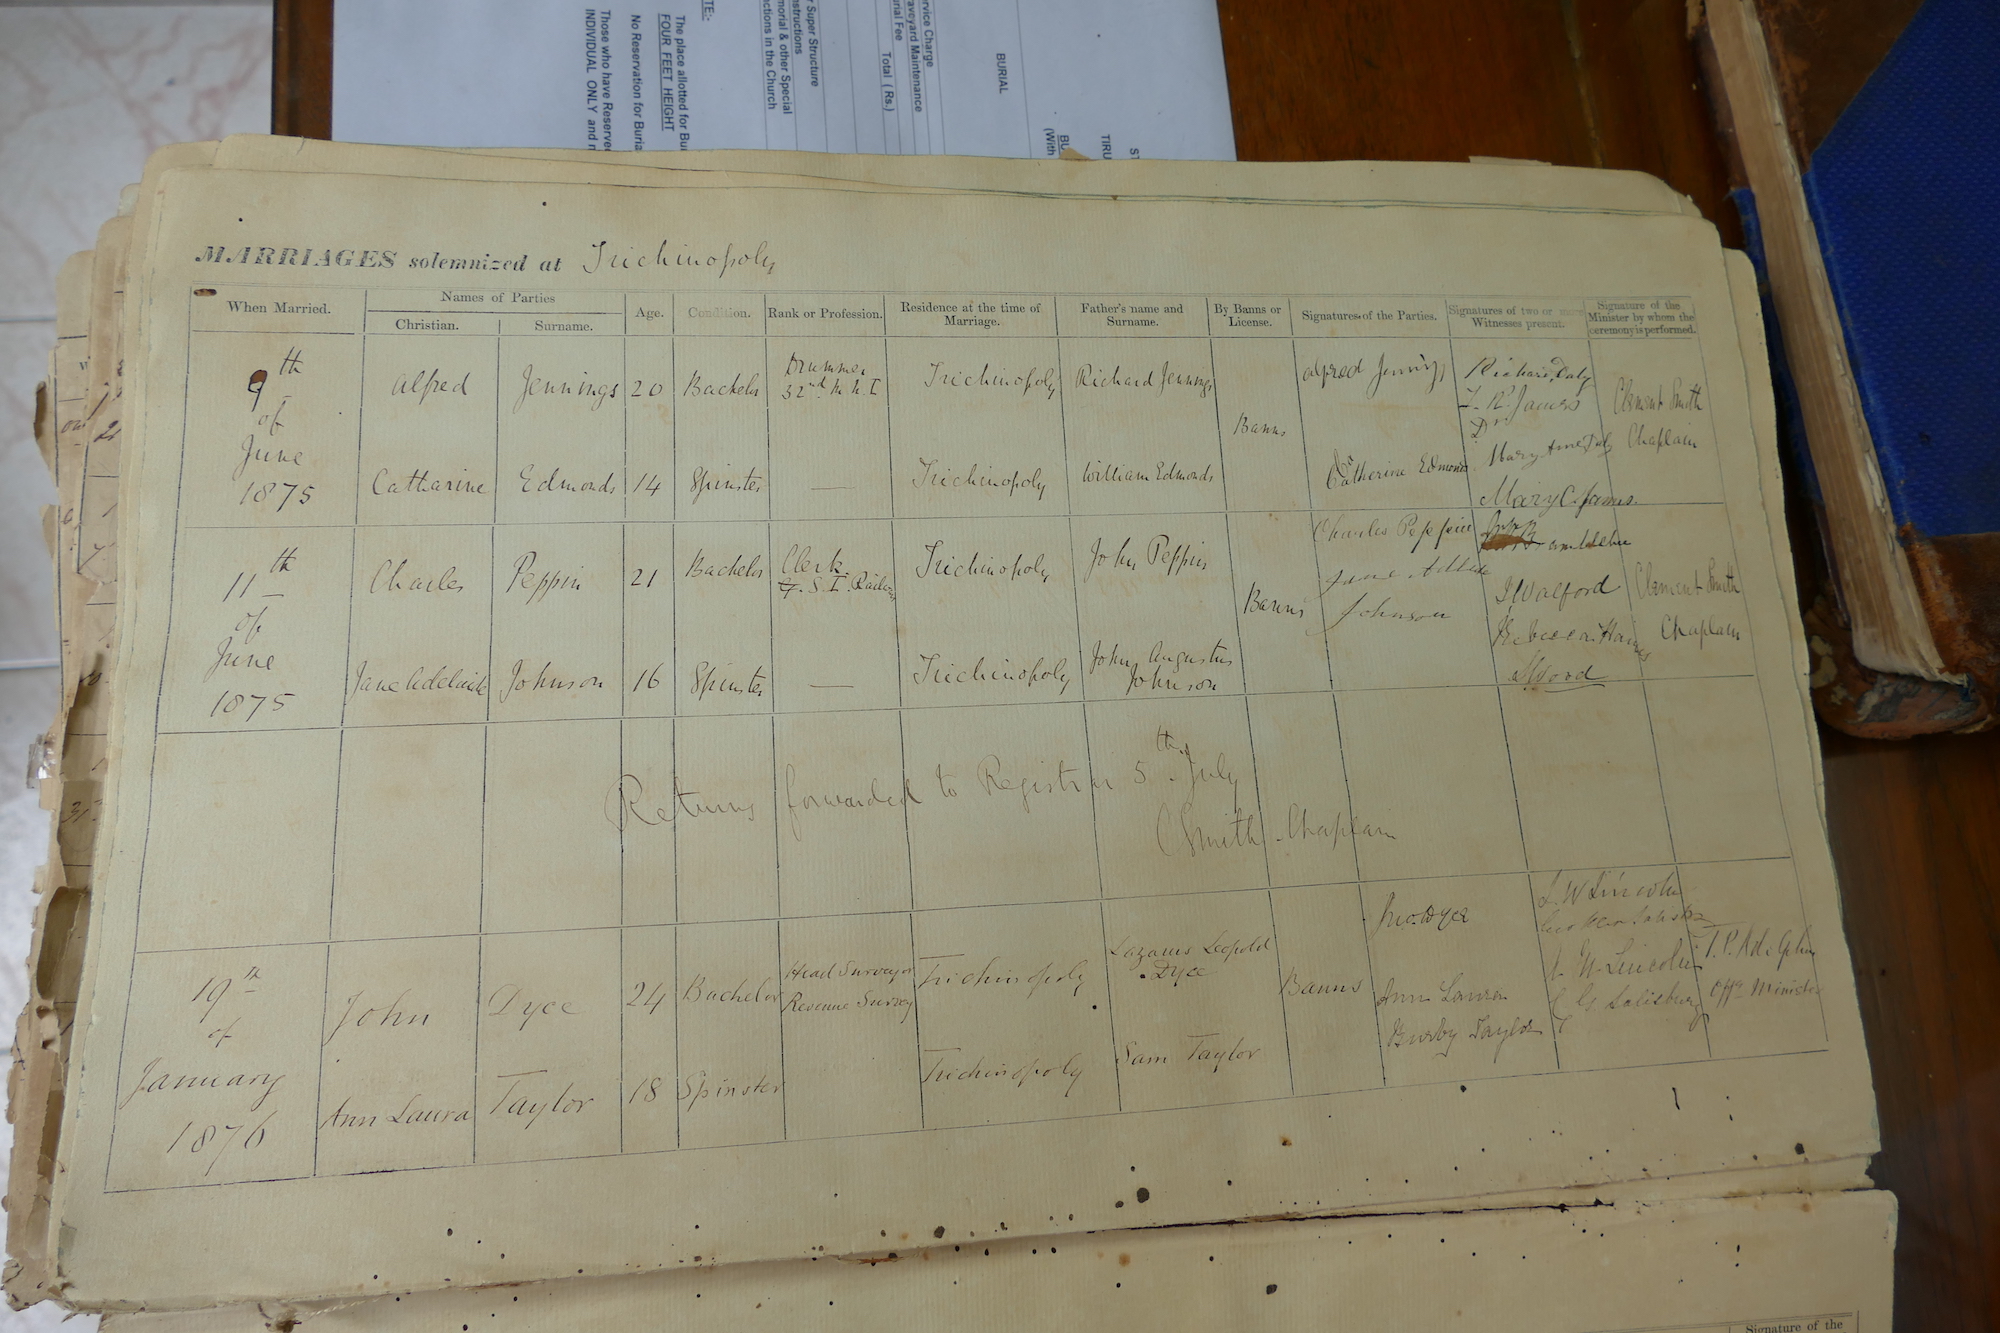 TE:-
The place allotted for Bu
FOUR FEET HEIGHT
No Reservation for Buria
Those who have Reserved
INDIVIDUAL ONLY and
r Super Structure
nstructions
morial & other Special
ctions in the Church
rvice Charge
aveyard Maintenance
rial Fee
Total ( Rs.)
BURIAL
BU
(With
TIRU
ST
MARRIAGES solemnized at Trichinopoly
When Married.
Names of Parties
Christian.
Surname.
Age.
Condition.
Rank or Profession.
Residence at the time of
Marriage.
Father's name and
Surname.
By Banns or
License.
Signatures of the Parties.
Signatures of two or more
Witnesses present.
Signature of the
Minister by whom the
ceremony is performed.
9th
of
June
1875
Alfred
Jennings
20
Bachelor
Drummer
32nd M. N. I
Trichinopoly
Richard Jennings
Banns
Alfred Jennings
Richard Daly
Clement Smith
Chaplain
Catharine
Edmonds
14
Spinster
Trichinopoly
William Edmonds
Catherine Edmonds
Mary C. James
11th
of
June
1875
Charles
Peppin
21
Bachelor
Clerk
S. I. Railway
Trichinopoly
John Peppin
Banns
Charles Peppin
Jane Adelaide
Johnson
J Walford
Clement Smith
Chaplain
Jane Adelaide
Johnson
16
Spinster
Trichinopoly
John Augustus
Johnson
Returns forwarded to Registrar 5th July
C Smith Chaplain
19th
of
January
1876
John
Dyce
24
Bachelor
Head Surveyor
Revenue Survey
Trichinopoly
Lazarus Leopold
Dyce
Banns
Jno. Dyce
Ann Laura
Busby Taylor
L. W Lincoln
N. Lincoln
G Salisbury
T. P. Adolphus
Offg Minister
Ann Laura
Taylor
18
Spinster
Trichinopoly
Sam Taylor
Signature of the